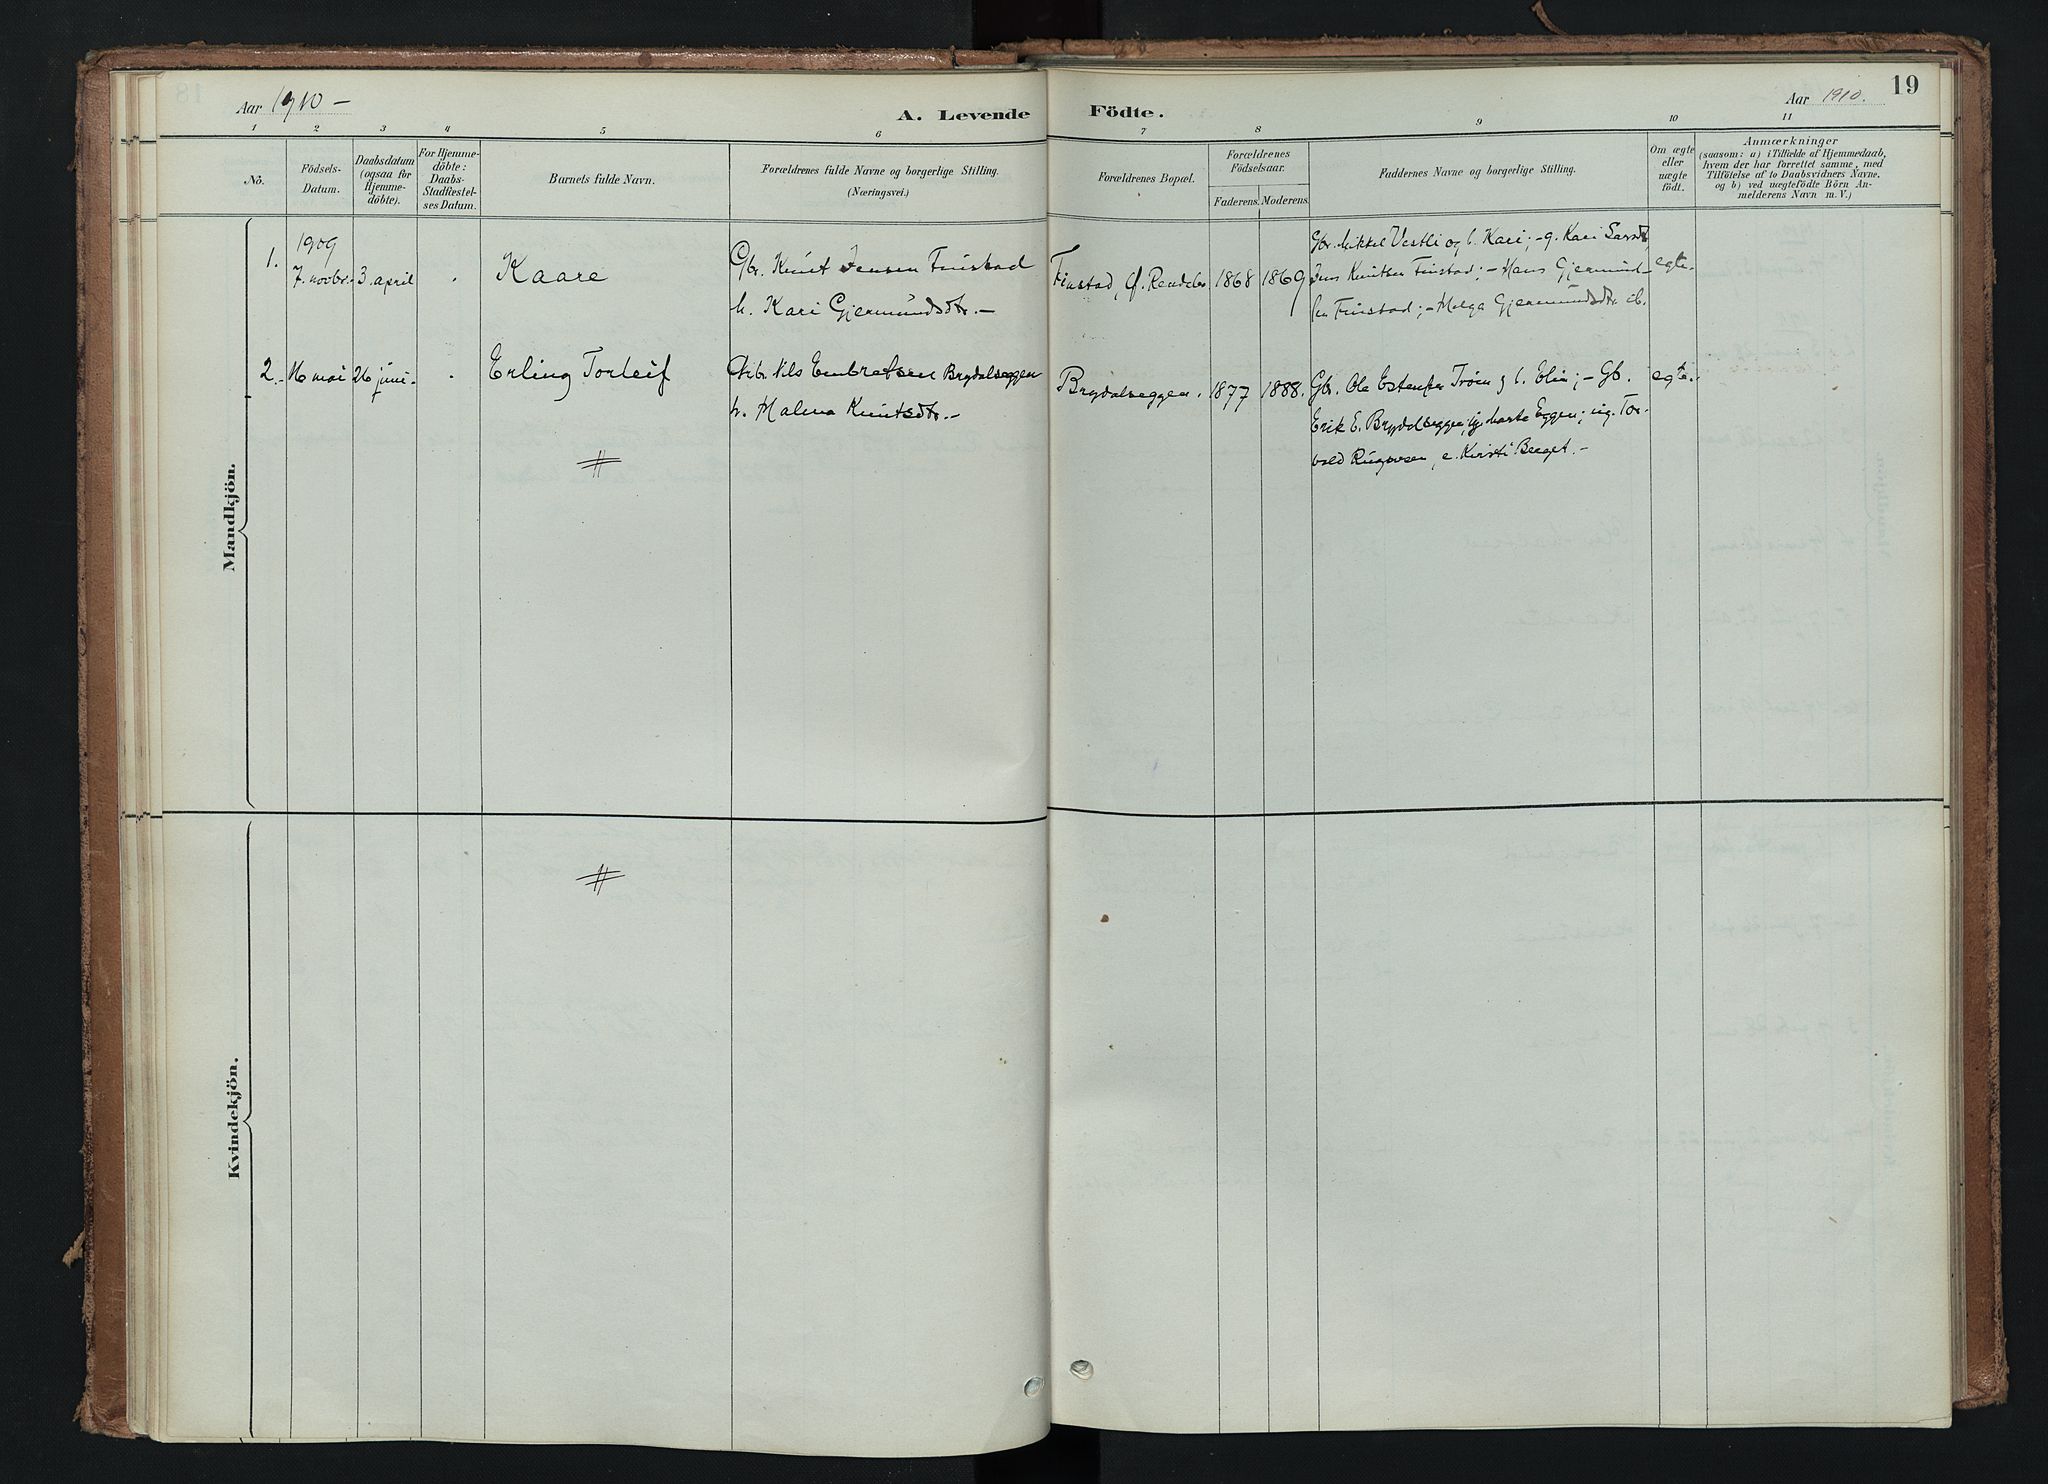 Aar 1910 –
A. Levende Födte.
Aar 1910.
19
1 2 3 4 5 6 7 8 9 10 11
No.
Födsels-
Datum.
Daabsdatum
(ogsaa for
Hjemme-
döbte).
For Hjemme-
döbte:
Daabs-
Stadfestel-
ses Datum.
Barnets fulde Navn.
Forældrenes fulde Navne og borgerlige Stilling.
(Næringsvei.)
Forældrenes Bopæl.
Forældrenes
Födselsaar.
Faderens.
Moderens.
Faddernes Navne og borgerlige Stilling.
Om ægte
eller
uægte
födt.
Anmærkninger
(saasom: a) i Tilfælde af Hjemmedaab,
hvem der har forrettet samme, med
Tilföielse af to Daabsvidners Navne,
og b) ved uægtefödte Börn An-
melderens Navn m. V.)
Mandkjön.
1.
1909
7. novbr.
3. april
Kaare
Gbr. Knut Jensen Finstad
h. Kari Gjermundsdtr. –
Finstad, Rendalen
1868
1869
Gbr. Mikkel Vestli og h. Kari; – g. Kari
Jens Knutsen Finstad; – Hans Gjermund-
sen Finstad; – Helga Gjermundsdtr. ib.
egte.
2.
16 mai
26 juni
Erling Torleif
Nils Embretsen Brydalseggen
h. Malena Knutsdtr. –
Brydalseggen.
1877
1888.
Gbr. Ole Estensen Trøen og h. Elin; – Gb.
Erik E. Brydalseggen, Eggen; ug. Tor-
vald Ringnesen, e. Kirsti Berget. –
egte.
Kvindekjön.